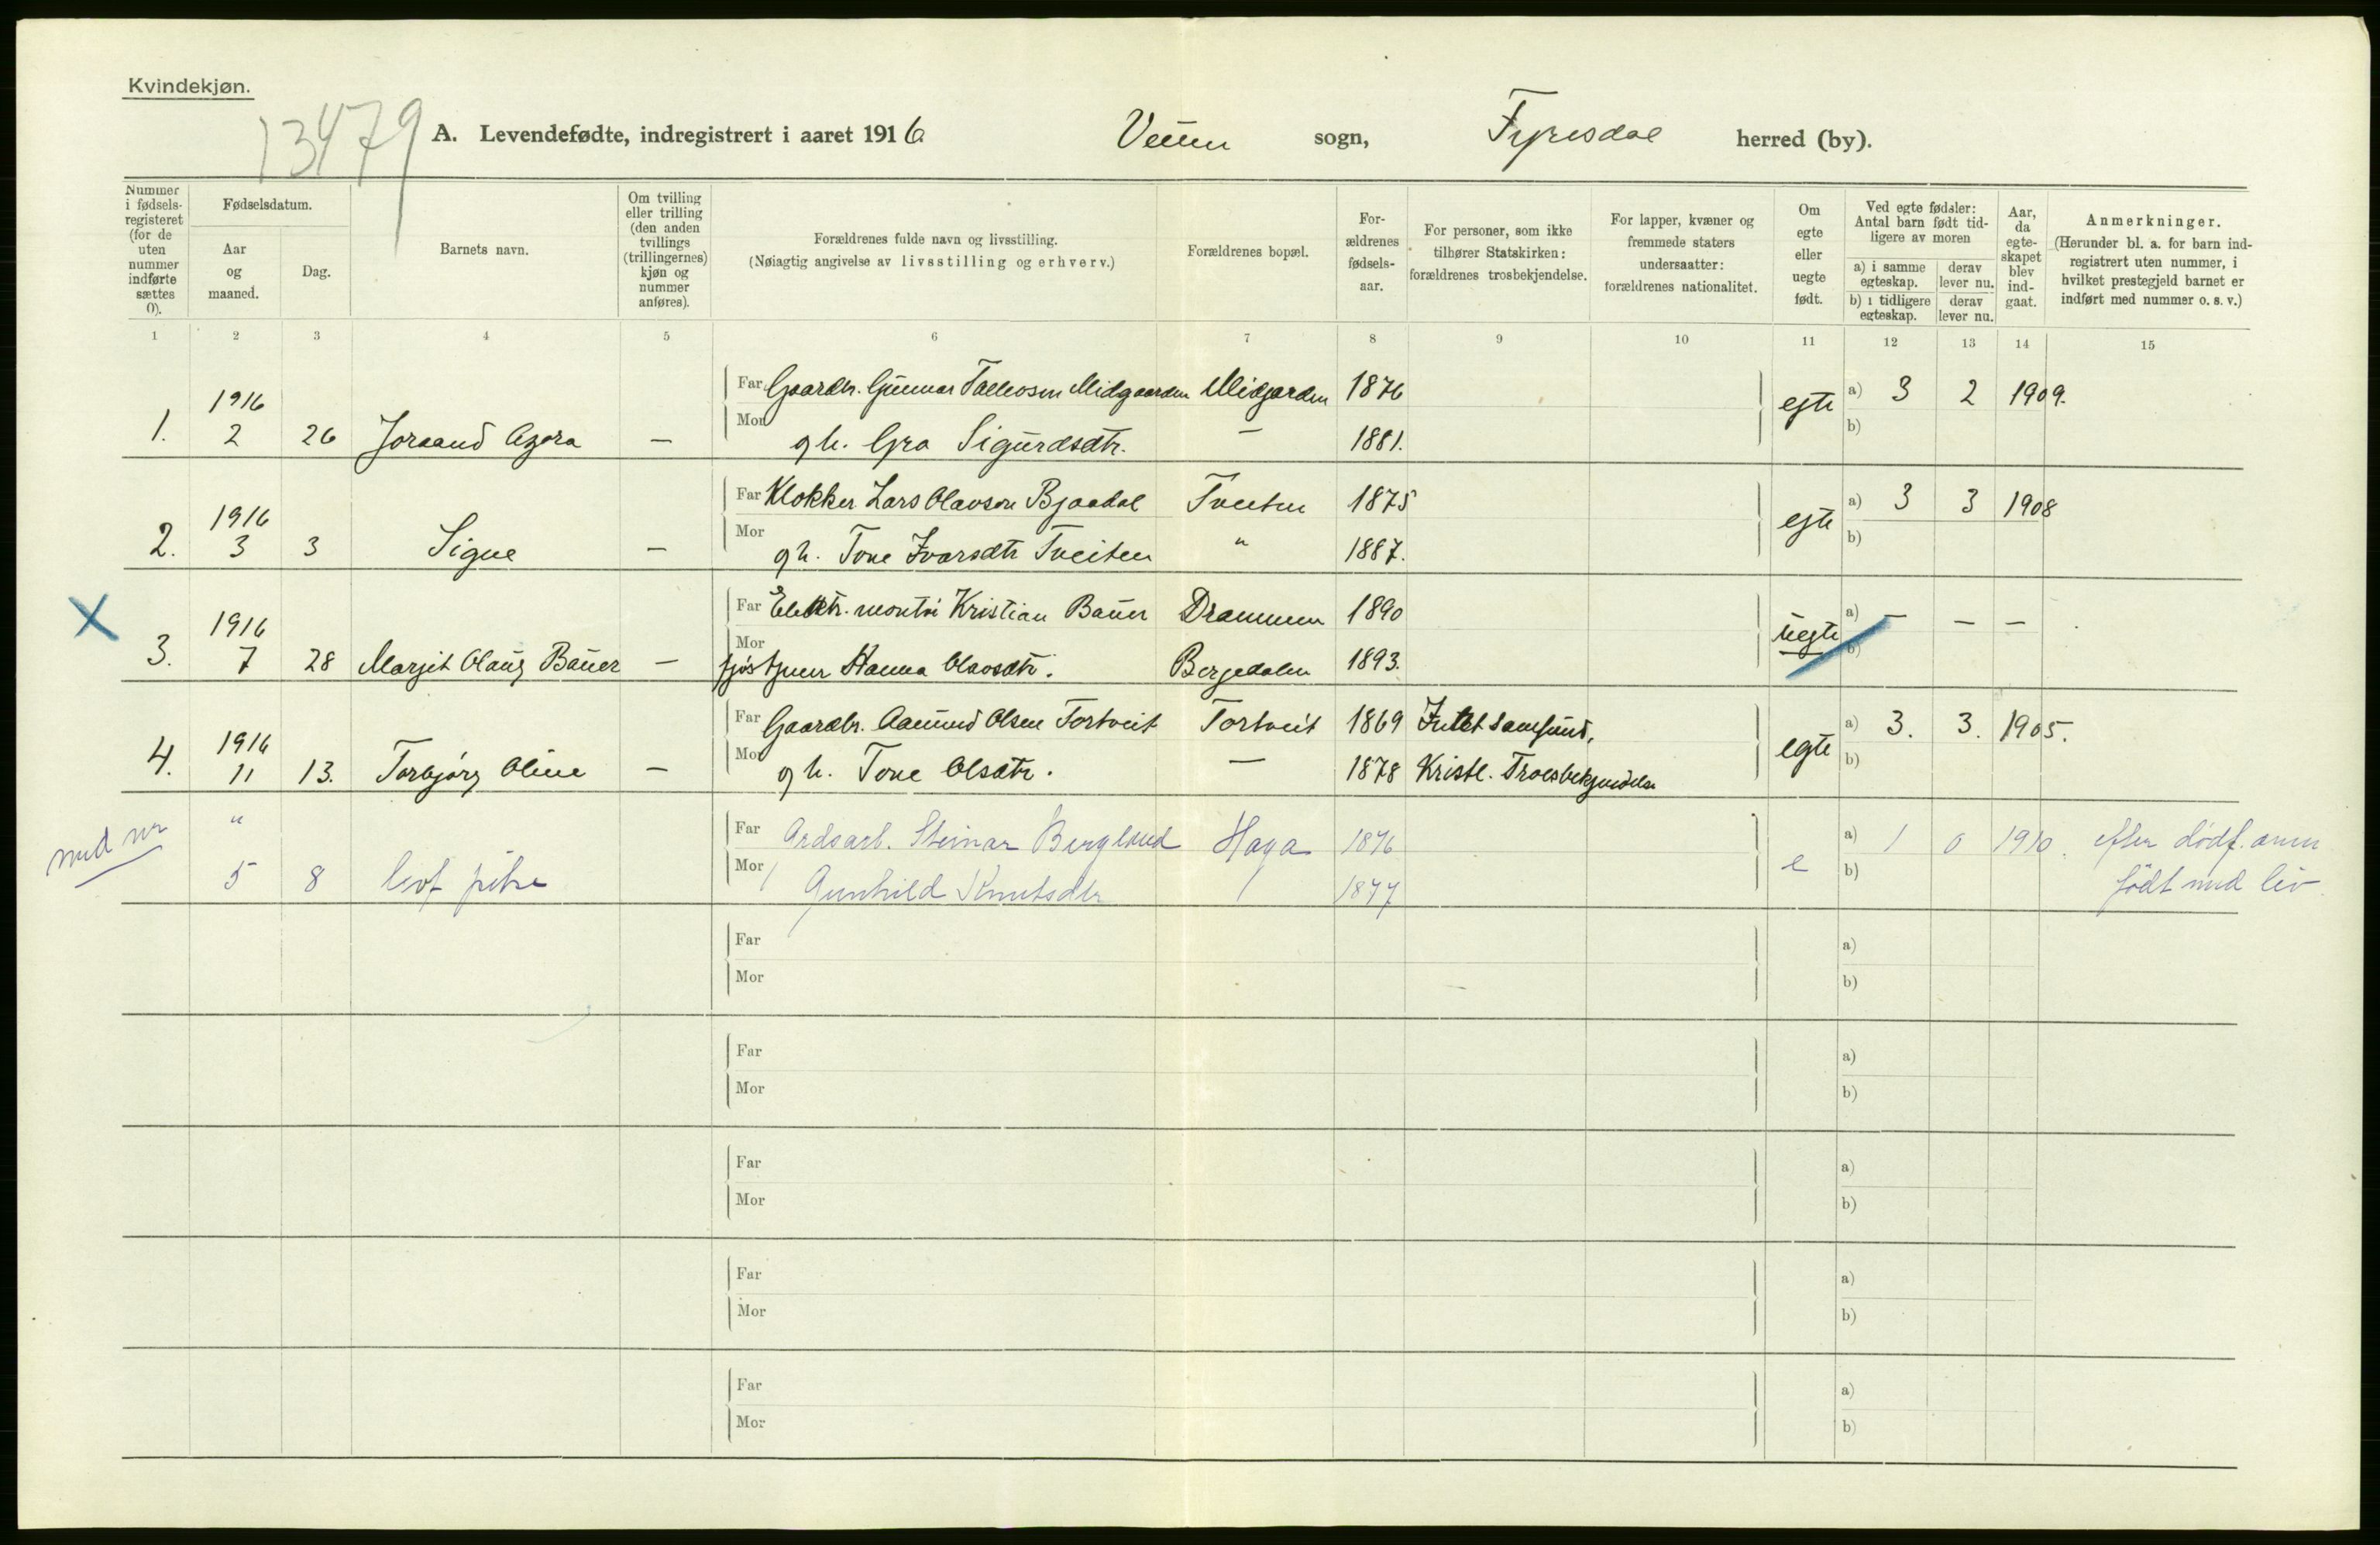 Kvindekjøn.
13479
A. Levendefødte, indregistrert i aaret 1916 Veum sogn, Fyresdal herred (by).
Nummer i fødsels-registeret (for de uten nummer indførte sættes 0).
Fødselsdatum.
Aar og maaned.
Dag.
Barnets navn.
Om tvilling eller trilling (den anden tvillings (trillingernes) kjøn og nummer anføres).
Forældrenes fulde navn og livsstilling.
(Nøiagtig angivelse av livsstilling og erhverv.)
Forældrenes bopæl.
For-ældrenes fødsels-aar.
For personer, som ikke tilhører Statskirken: forældrenes trosbekjendelse.
For lapper, kvæner og fremmede staters undersaatter: forældrenes nationalitet.
Om egte eller uegte født.
Ved egte fødsler: Antal barn født tid-ligere av moren
a) i samme egteskap. derav lever nu.
b) i tidligere egteskap. derav lever nu.
Aar, da egte-skapet blev ind-gaat.
Anmerkninger.
(Herunder bl. a. for barn ind-registrert uten nummer, i hvilket prestegjeld barnet er indført med nummer o. s. v.)
1 2 3 4 5 6 7 8 9 10 11 12 13 14 15
Far Gaardbr. Gunnar Tallevsen Midgaarden Midgarden 1876 a) 3 2 1909.
1. 1916 2 26 Joraand Agora — Mor g h. Gro Sigurdsdtr. — 1881. egte b)
Far Klokker Lars Olavson Bjaadal Tveiten 1875 a) 3 3 1908
2. 1916 3 3 Signe — Mor g h. Tone Ivarsdtr Tveiten " 1887. egte b)
X Far Elektr. montør Kristian Bauer Drammen 1890 a) — — —
3. 1916 7 28 Margit Olaug Bauer — Mor Hanna Olavsdtr. Bergedalen 1893. uegte b)
Far Gaardbr. Aamund Olsen Tortveit Tortveit 1869 Intet samfund, a) 3. 3. 1905.
4. 1916 11 13. Torbjørg Oline — Mor g h. Tone Olsdtr. — 1878 Kristl. Troesbekjendelse egte b)
med nr " Far Steinar Berglund Haga 1876 a) 1 0 1910. efter dødf. anm
5 8 levf pike Mor Gunhild Knutsdtr 1877 e b) født med liv
Far a)
Mor b)
Far a)
Mor b)
Far a)
Mor b)
Far a)
Mor b)
Far a)
Mor b)